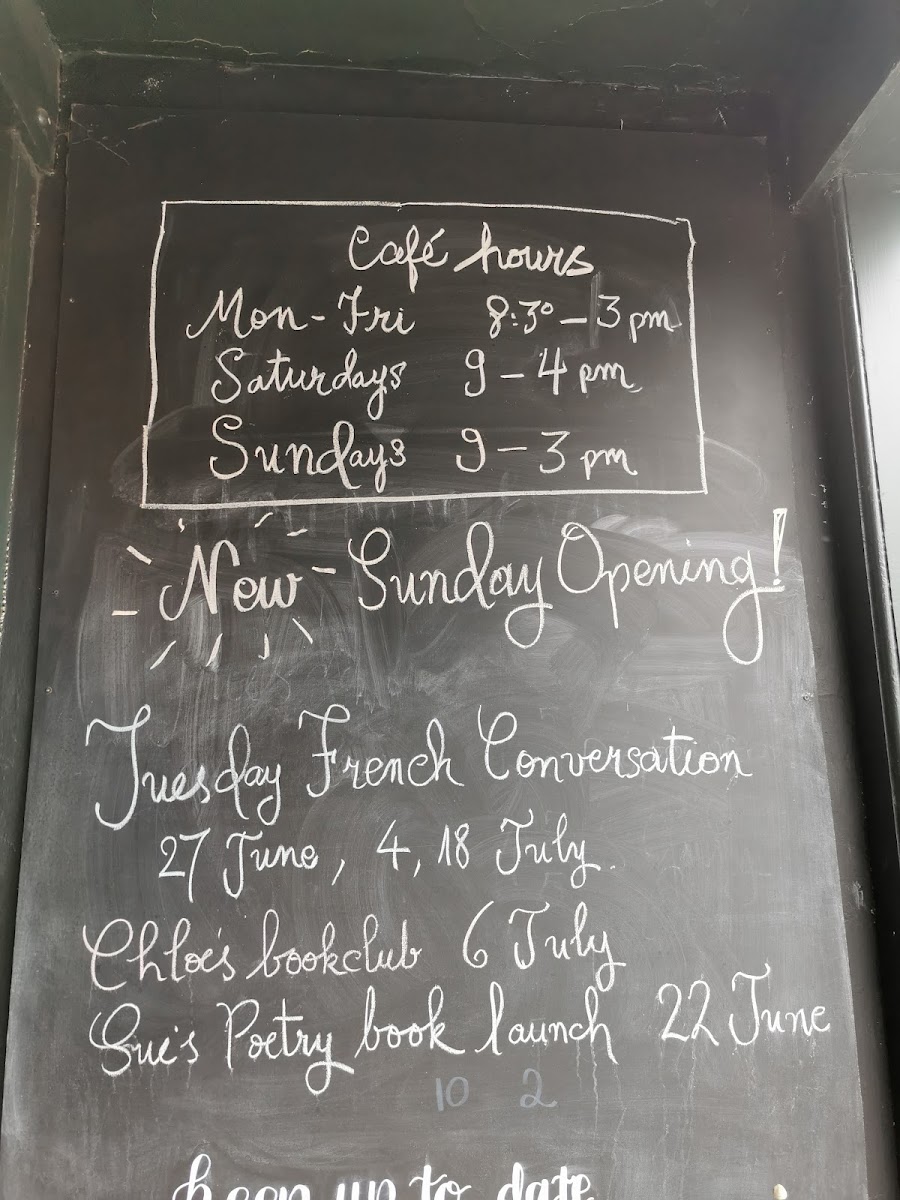 Café hours
Mon-Fri 8:30 - 3 pm
Saturdays 9 - 4 pm
Sundays 9 - 3 pm
New - Sunday Opening!
Tuesday French Conversation
27 June, 4, 18 July.
Chloe's bookclub 6 July
Sue's Poetry book launch 22 June
10 2
keep up to date